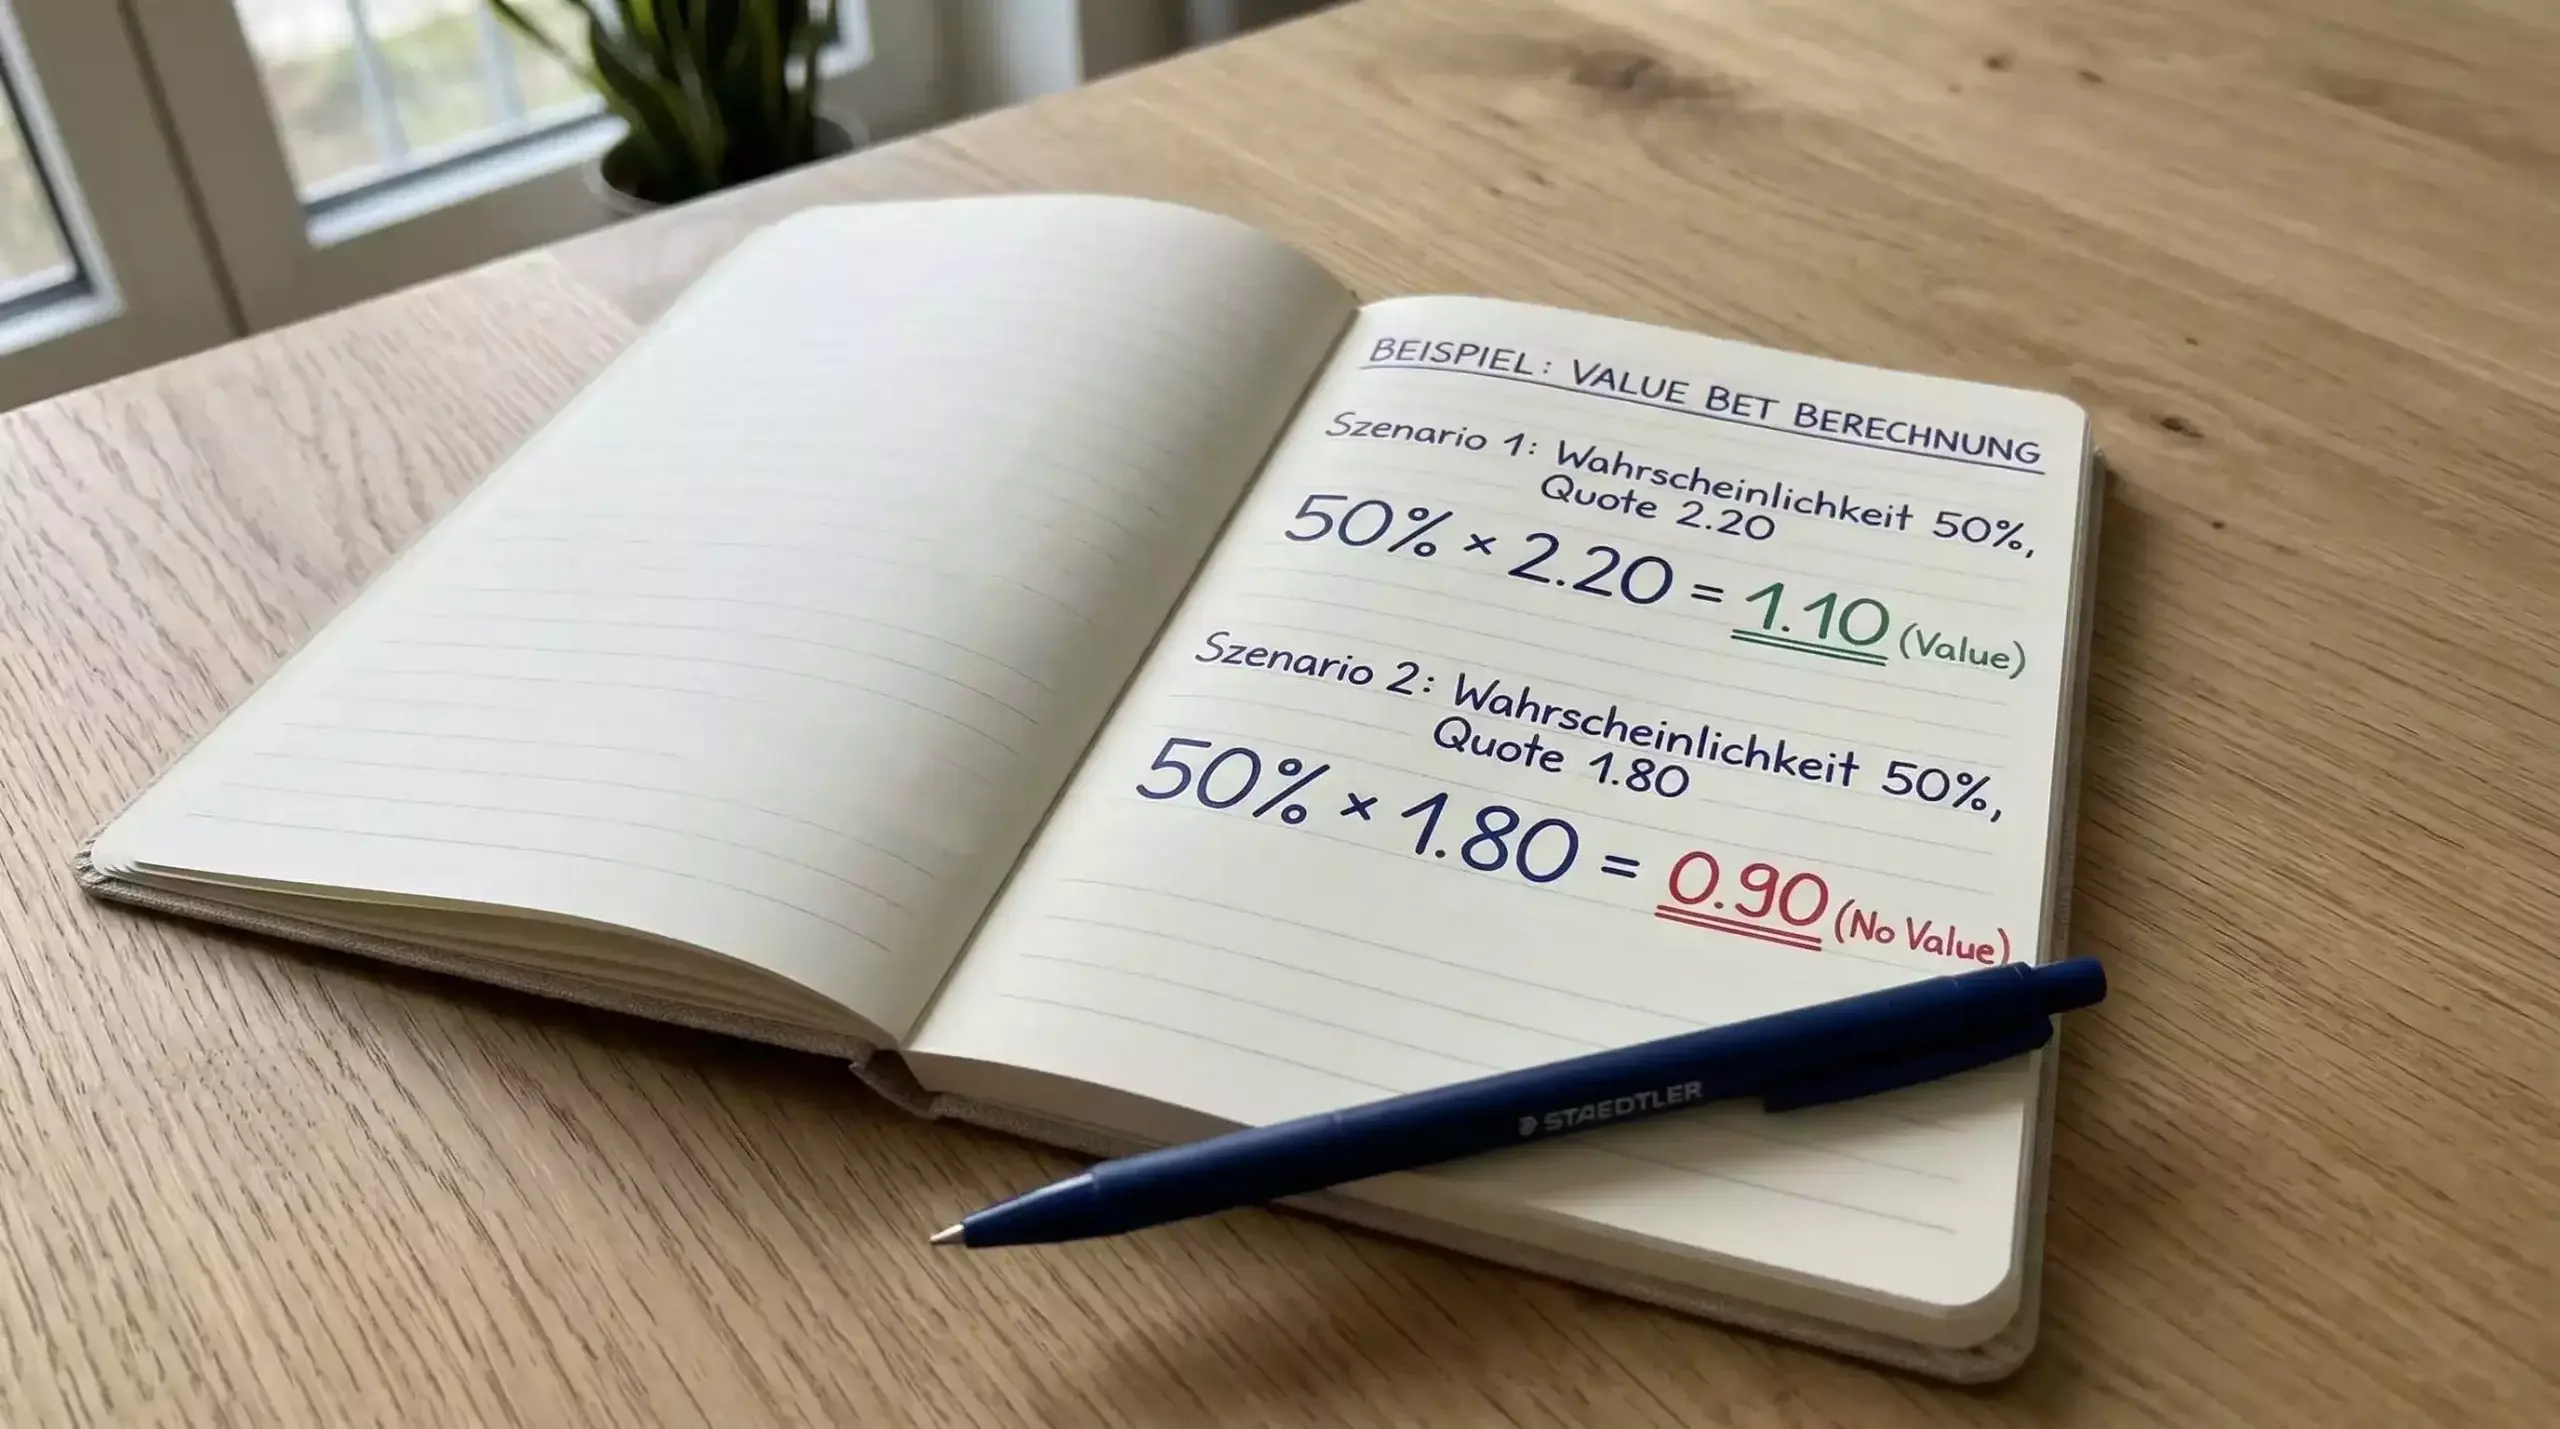 BEISPIEL: VALUE BET BERECHNUNG
Szenario 1: Wahrscheinlichkeit 50%,
Quote 2.20
50% × 2.20 = 1.10 (Value)
Szenario 2: Wahrscheinlichkeit 50%,
Quote 1.80
50% × 1.80 = 0.90 (No Value)
STAEDTLER